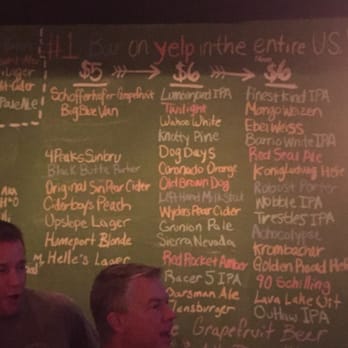 #1 Bar on yelp in the entire US
$5 $6 $6
Lager
Pale Ale
Schofferhofer Grapefruit
Big Blue Van
4 Peaks Sunbru
Black Butte Porter
Original Sin Pear Cider
Ciderboys Peach
Upslope Lager
Homeport Blonde
Helle's Lager
Lumberyard IPA
Twilight
Wahoo White
Knotty Pine
Dog Days
Coronado Orange
Old Brown Dog
Left Hand Milk Stout
Wyders Pear Cider
Grunion Pale
Sierra Nevada
Red Rocket Amber
Racer 5 IPA
Oarsman Ale
Grapefruit Beer
Finest Kind IPA
Mango Weizen
Ebel Weiss
Barrio White IPA
Red Seal Ale
Robust Porter
Wobble IPA
Trestles IPA
Krombacher
90 Schilling
Lava Lake Wit
Outlaw IPA